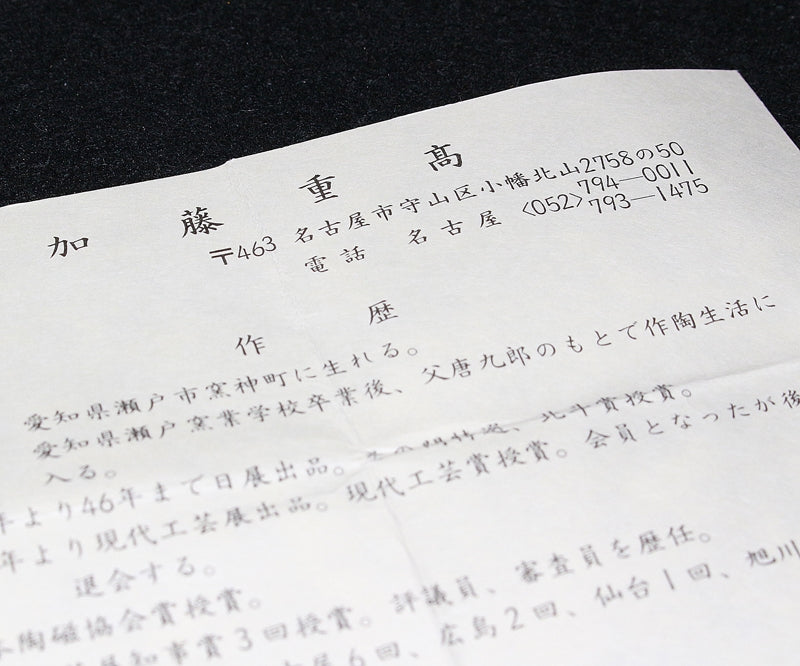 加藤重髙
〒463 名古屋市守山区小幡北山2758の50
電話 名古屋〈052〉794—0011
793—1475
作歴
愛知県瀬戸市窯神町に生れる。
愛知県瀬戸窯業学校卒業後、父唐九郎のもとで作陶生活に
入る。
年より46年まで日展出品。その間特選、北斗賞授賞。
年より現代工芸展出品。現代工芸賞授賞。会員となったが後
退会する。
陶磁協会賞授賞。
県知事賞3回授賞。評議員、審査員を歴任。
6回、広島2回、仙台1回、旭川